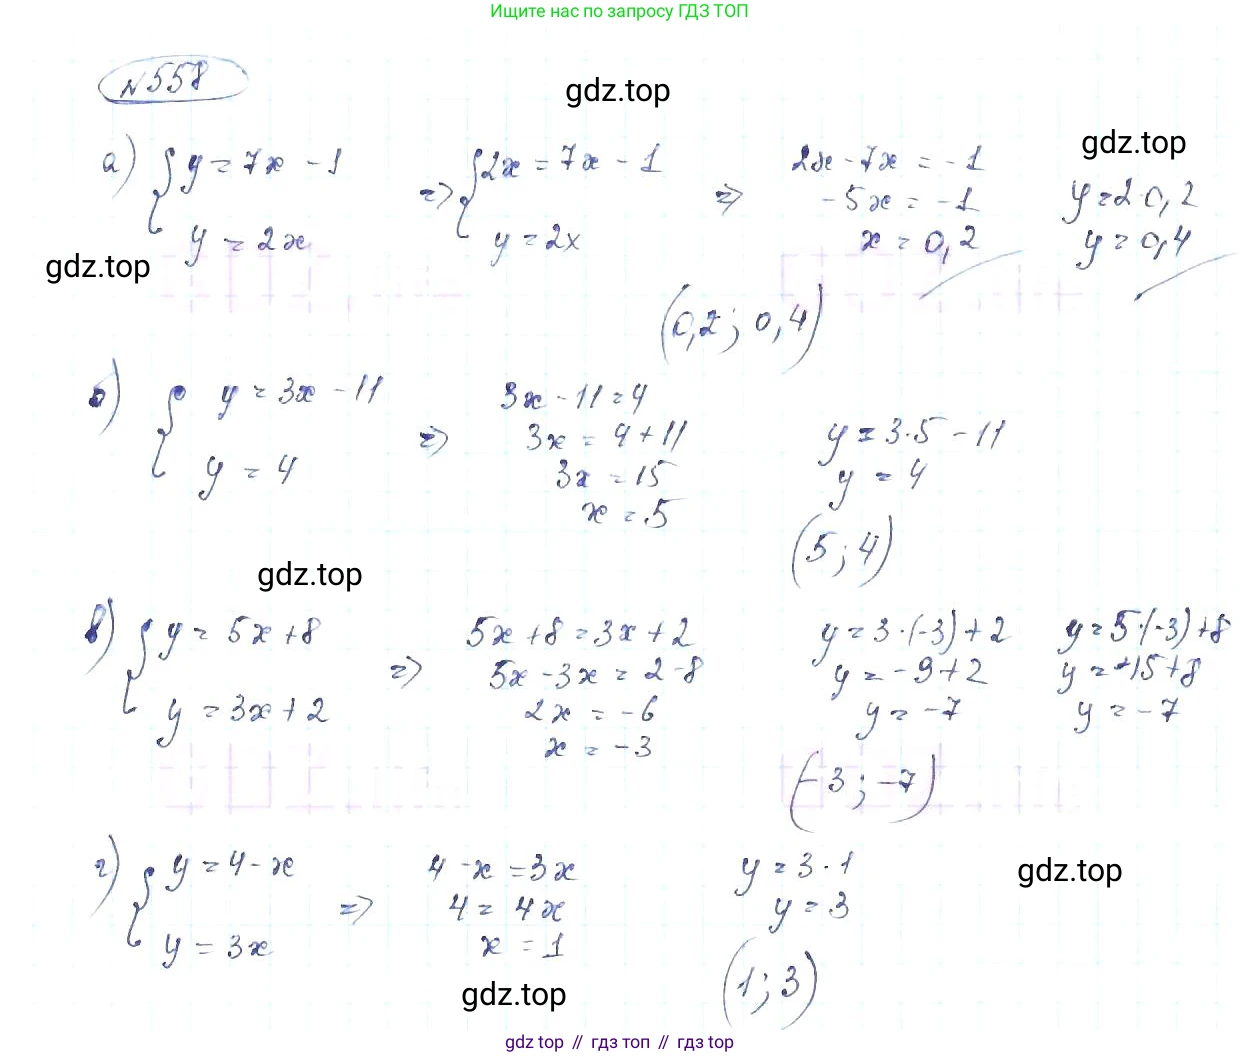 Ищите нас по запросу ГДЗ ТОП
№558
gdz.top
gdz.top
а) { y = 7x - 1
y = 2x
=> { 2x = 7x - 1
y = 2x
=> 2x - 7x = -1
-5x = -1
x = 0,2
y = 2·0,2
y = 0,4
gdz.top
(0,2; 0,4)
б) { y = 3x - 11
y = 4
=> 3x - 11 = 4
3x = 4 + 11
3x = 15
x = 5
y = 3·5 - 11
y = 4
(5; 4)
gdz.top
в) { y = 5x + 8
y = 3x + 2
=> 5x + 8 = 3x + 2
5x - 3x = 2 - 8
2x = -6
x = -3
y = 3·(-3) + 2
y = -9 + 2
y = -7
y = 5·(-3) + 8
y = -15 + 8
y = -7
(-3; -7)
г) { y = 4 - x
y = 3x
=> 4 - x = 3x
4 = 4x
x = 1
y = 3·1
y = 3
gdz.top
(1; 3)
gdz.top
gdz top // гдз топ // gdz top